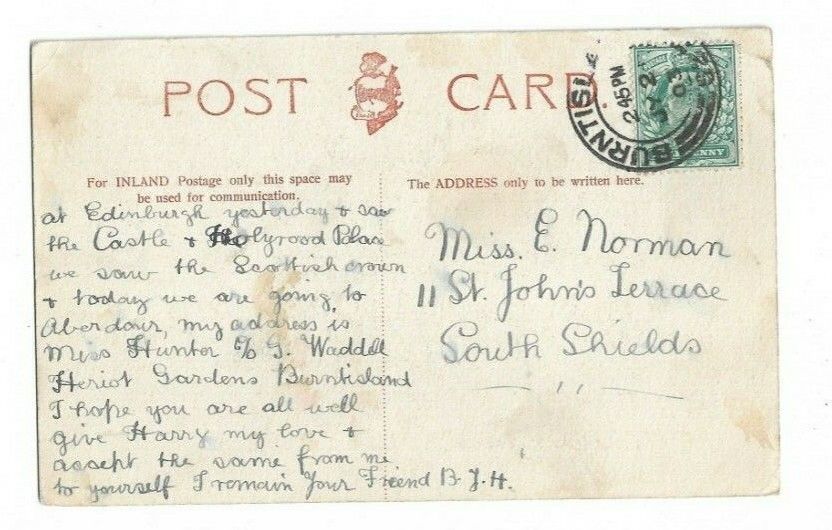 POST CARD.
BURNTISL
2.45PM
JY 2
03
For INLAND Postage only this space may
be used for communication.
The ADDRESS only to be written here.
at Edinburgh yesterday & saw
the Castle & Holyrood Palace
we saw the Scottish crown
& today we are going to
Aberdour, my address is
Miss Hunter c/o G. Waddell
Heriot Gardens Burntisland
I hope you are all well
give Harry my love &
accept the same from me
to yourself I remain Your Friend B. J. H.
Miss. E. Norman
11 St. John's Terrace
South Shields